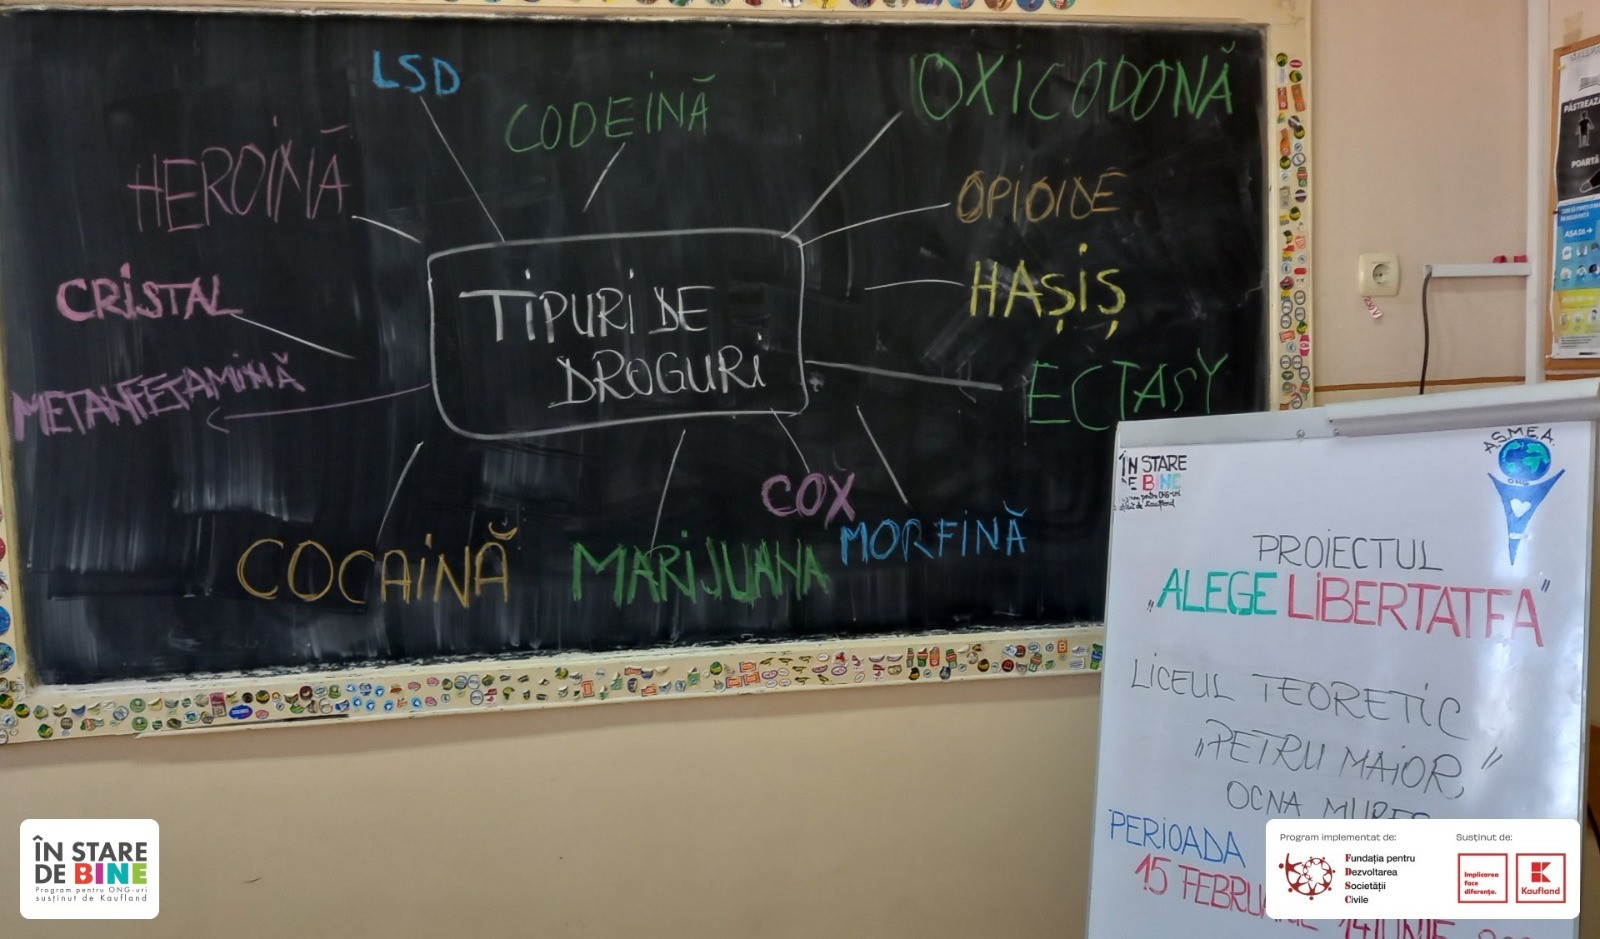 LSD
CODEINĂ
OXICODONĂ
HEROINĂ
OPIOIDE
CRISTAL
HAȘIȘ
TIPURI DE
DROGURI
METANFETAMINĂ
ECTASY
COX
COCAINĂ
MARIJUANA
MORFINĂ
PĂSTREAZĂ
POARTĂ
AȘA DA
ÎN STARE
DE BINE
A.S.M.E.A.
ONG
PROIECTUL
„ALEGE LIBERTATEA"
LICEUL TEORETIC
„PETRU MAIOR,"
OCNA MUREȘ
PERIOADA
15 FEBRUARIE 14 IUNIE
ÎN STARE
DE BINE
Program pentru ONG-uri
susținut de Kaufland
Program implementat de:
Fundația pentru
Dezvoltarea
Societății
Civile
Susținut de:
Implicarea
face
diferența.
Kaufland